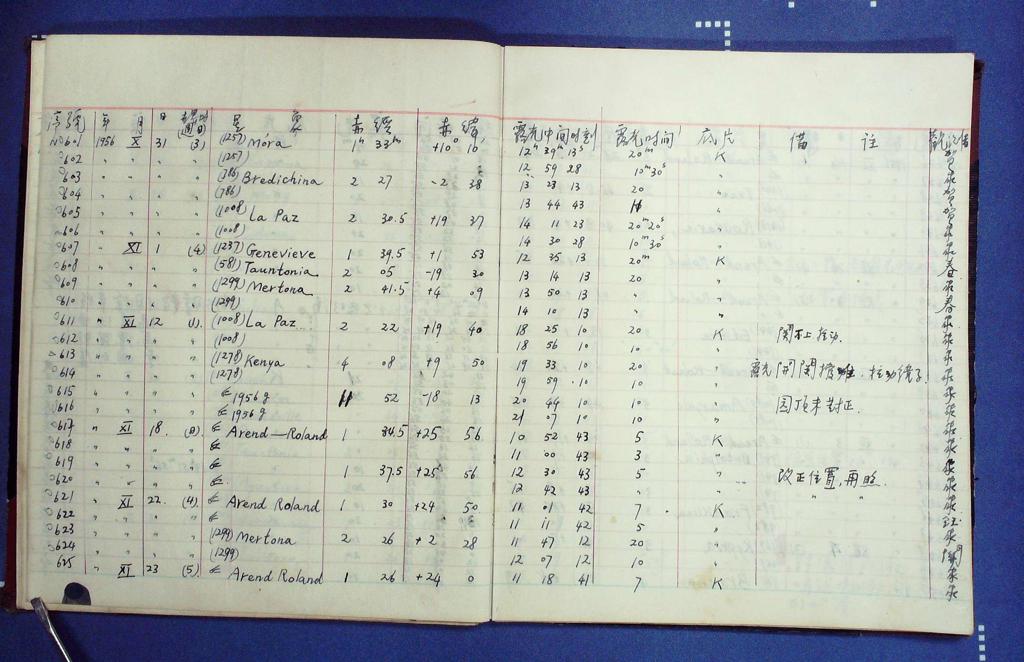 序號 年 月 日 星 象 赤 經 赤 緯 露光中间时刻 露光时间 底片 備 註
No601 1956 X 31 (3) (1257) Móra 1h 33m +10° 10' 12h 39m 13s 20m K
602 " " " " (1257) 12 59 28 10m30s "
603 " " " " (786) Bredichina 2 27 -2 38 13 23 13 20 "
604 " " " " (786) 13 44 43 "
605 " " " " (1008) La Paz 2 30.5 +19 37 14 11 23 20m20s "
606 " " " " (1008) 14 30 28 10m30s "
607 " XI 1 (4) (1237) Genevieve 1 39.5 +1 53 12 35 13 20m K
608 " " " " (581) Tauntonia 2 05 -19 30 13 14 13 20 "
609 " " " " (1299) Mertona 2 41.5 +4 09 13 50 13 " "
610 " " " " (1299) 14 10 13 " "
611 " XI 12 (1) (1008) La Paz 2 22 +19 40 18 25 10 20 K 関不上拉动.
612 " " " " (1008) 18 56 10 10 "
613 " " " " (1278) Kenya 4 08 +9 50 19 33 10 20 "
614 " " " " (1278) 19 59 10 10 " 露光開関
615 " " " " 1956 g 11 52 -18 13 20 44 10 10 "
616 " " " " 1956 g 21 07 10 10 " 园顶未对正.
617 " XI 18. Arend—Roland 1 34.5 +25 56 10 52 43 5 K
618 " " " " 11 00 43 3 "
619 " " " " 1 37.5 +25 56 12 30 43 5 " 改正位置,再照.
620 " " " " 12 42 43 " " " "
621 " XI 22. (4) Arend Roland 1 30 +24 50 11 01 42 7 K
622 " " " " 11 11 42 5 "
623 " " " " (1299) Mertona 2 26 +2 28 11 47 12 20 "
624 " " " " (1299) 12 07 12 10 "
625 " XI 23 (5) Arend Roland 1 26 +24 0 11 18 41 7 K